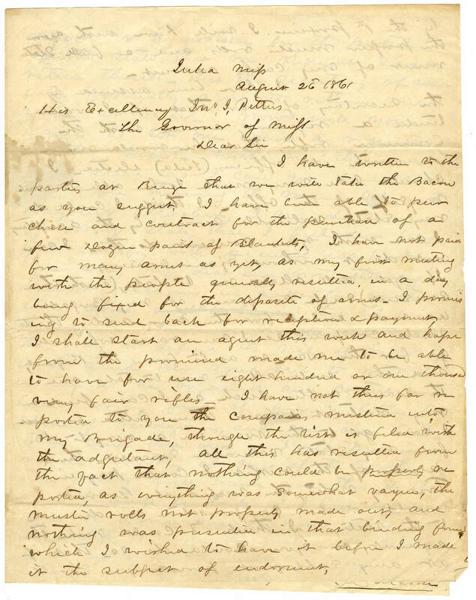 Iuka Miss
August 26 1861
His Excellency Jno. J. Pettus
The Governor of Miss
Dear Sir
I have written to the
parties at Rienzi that we will take the Bacon
as you suggest, I have been able to pur
chase and contract for the purchase of a
few dozen pairs of Blankets, I have not paid
for many arms as yet, as my first meeting
with the people generally resulted in a day
being fixed for the deposite of arms - I promis
ing to send back for reception & payment,
I shall start an agent this week and hope
from the promises made me to be able
to have for use eight hundred or one thousand
very fair rifles - I have not thus far re
ported to you the companies mustered into
my Brigade, through the list is filed with
the adjutant. all this has resulted from
the fact that nothing could be properly re
ported as everything was somewhat vague, the
muster rolls not properly made out, and
nothing was presented in that binding form
which I wished to have it before I made
it the subject of endorsment,